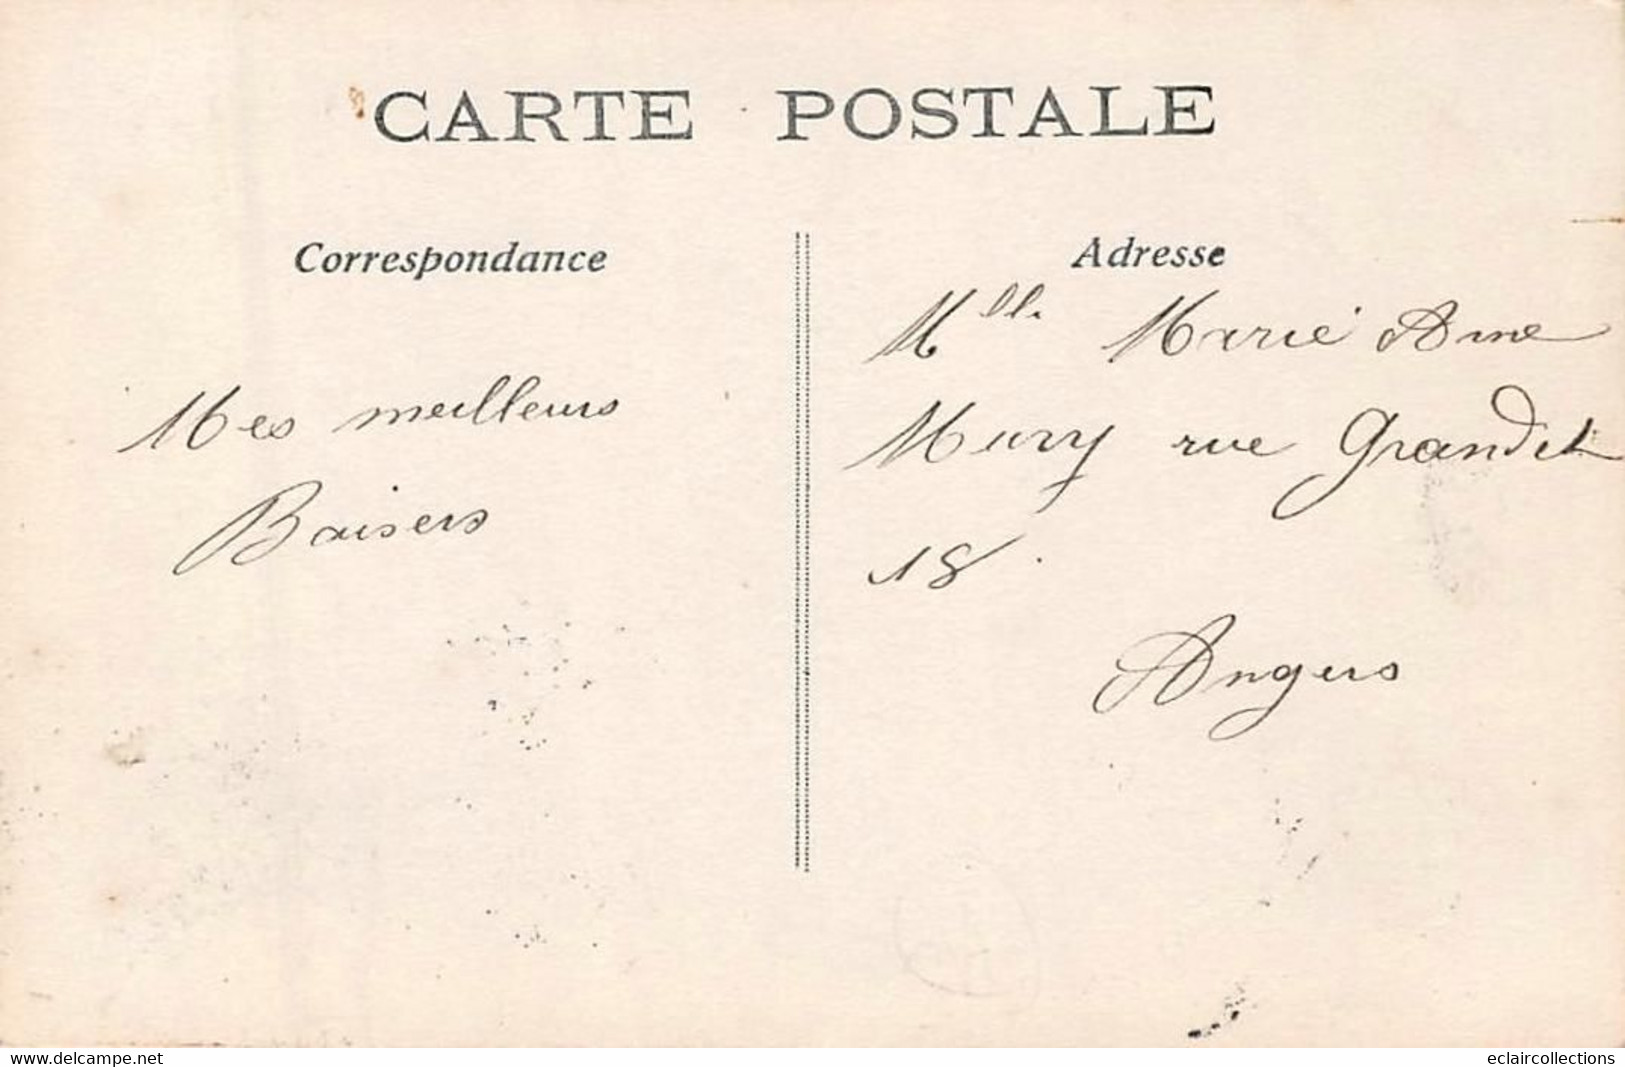 CARTE POSTALE
Correspondance
Mes meilleurs
Baisers
Adresse
Mlle Marie Anne
Mury rue Grandet
18.
Angers
www.delcampe.net
eclaircollections